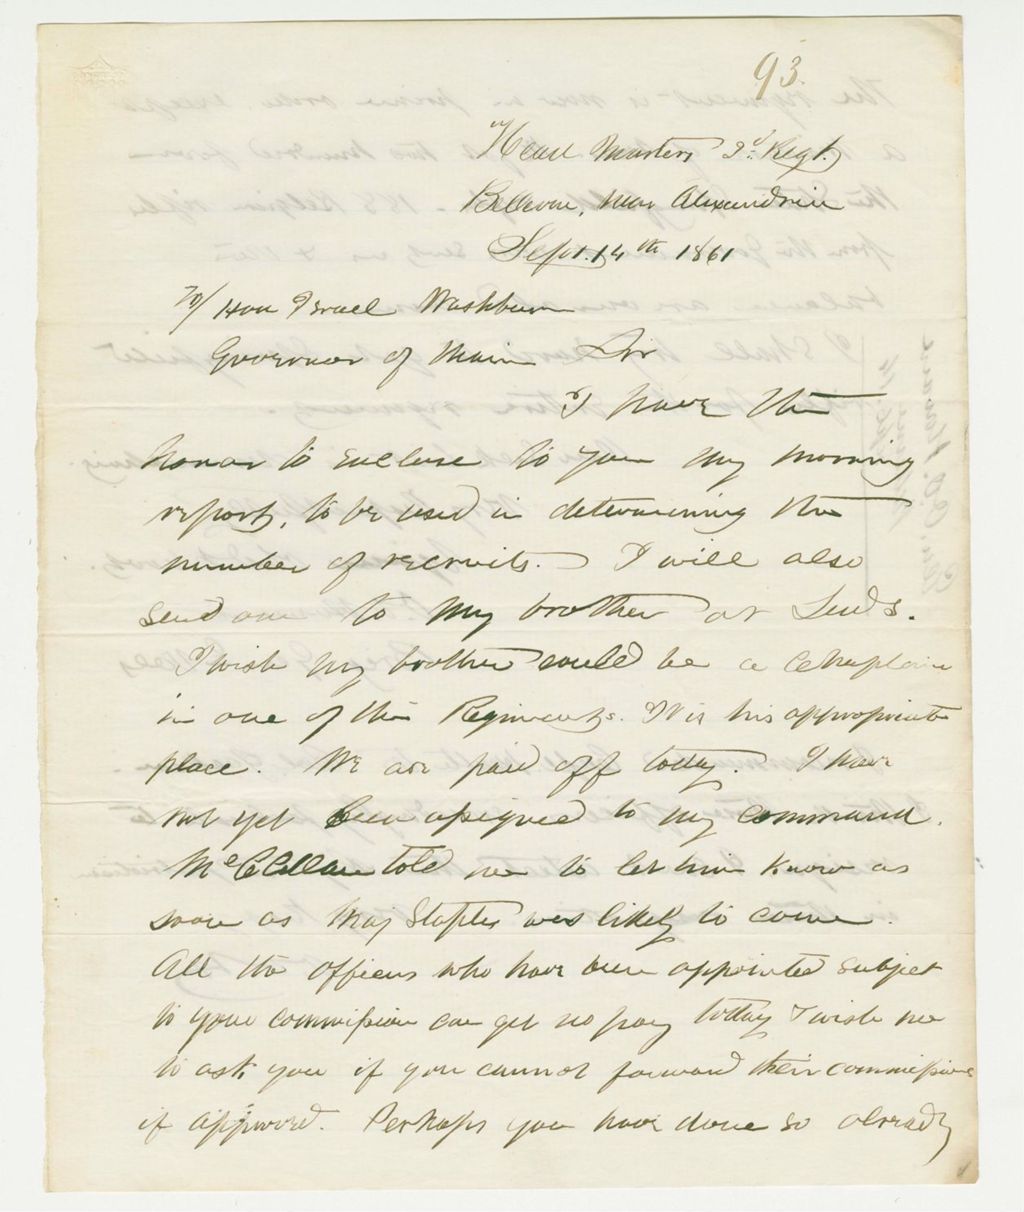 93.
Head Quarters 3d. Regt.
Bellevue, near Alexandria
Sept. 14th 1861
To/ Hon Israel Washburn
Governor of Maine Sir
I have the
honor to enclose to you my morning
report, to be used in determining the
number of recruits. I will also
send one to my brother at Leeds.
I wish my brother could be a Chaplain
in one of the Regiments. It is his appropriate
place. We are paid off today. I have
not yet been assigned to my command.
McClellan told me to let him know as
soon as Maj Staples was likely to come.
All the officers who have been appointed subject
to your commission can get no pay today & wish me
to ask you if you cannot forward their commissions
if approved. Perhaps you have done so already